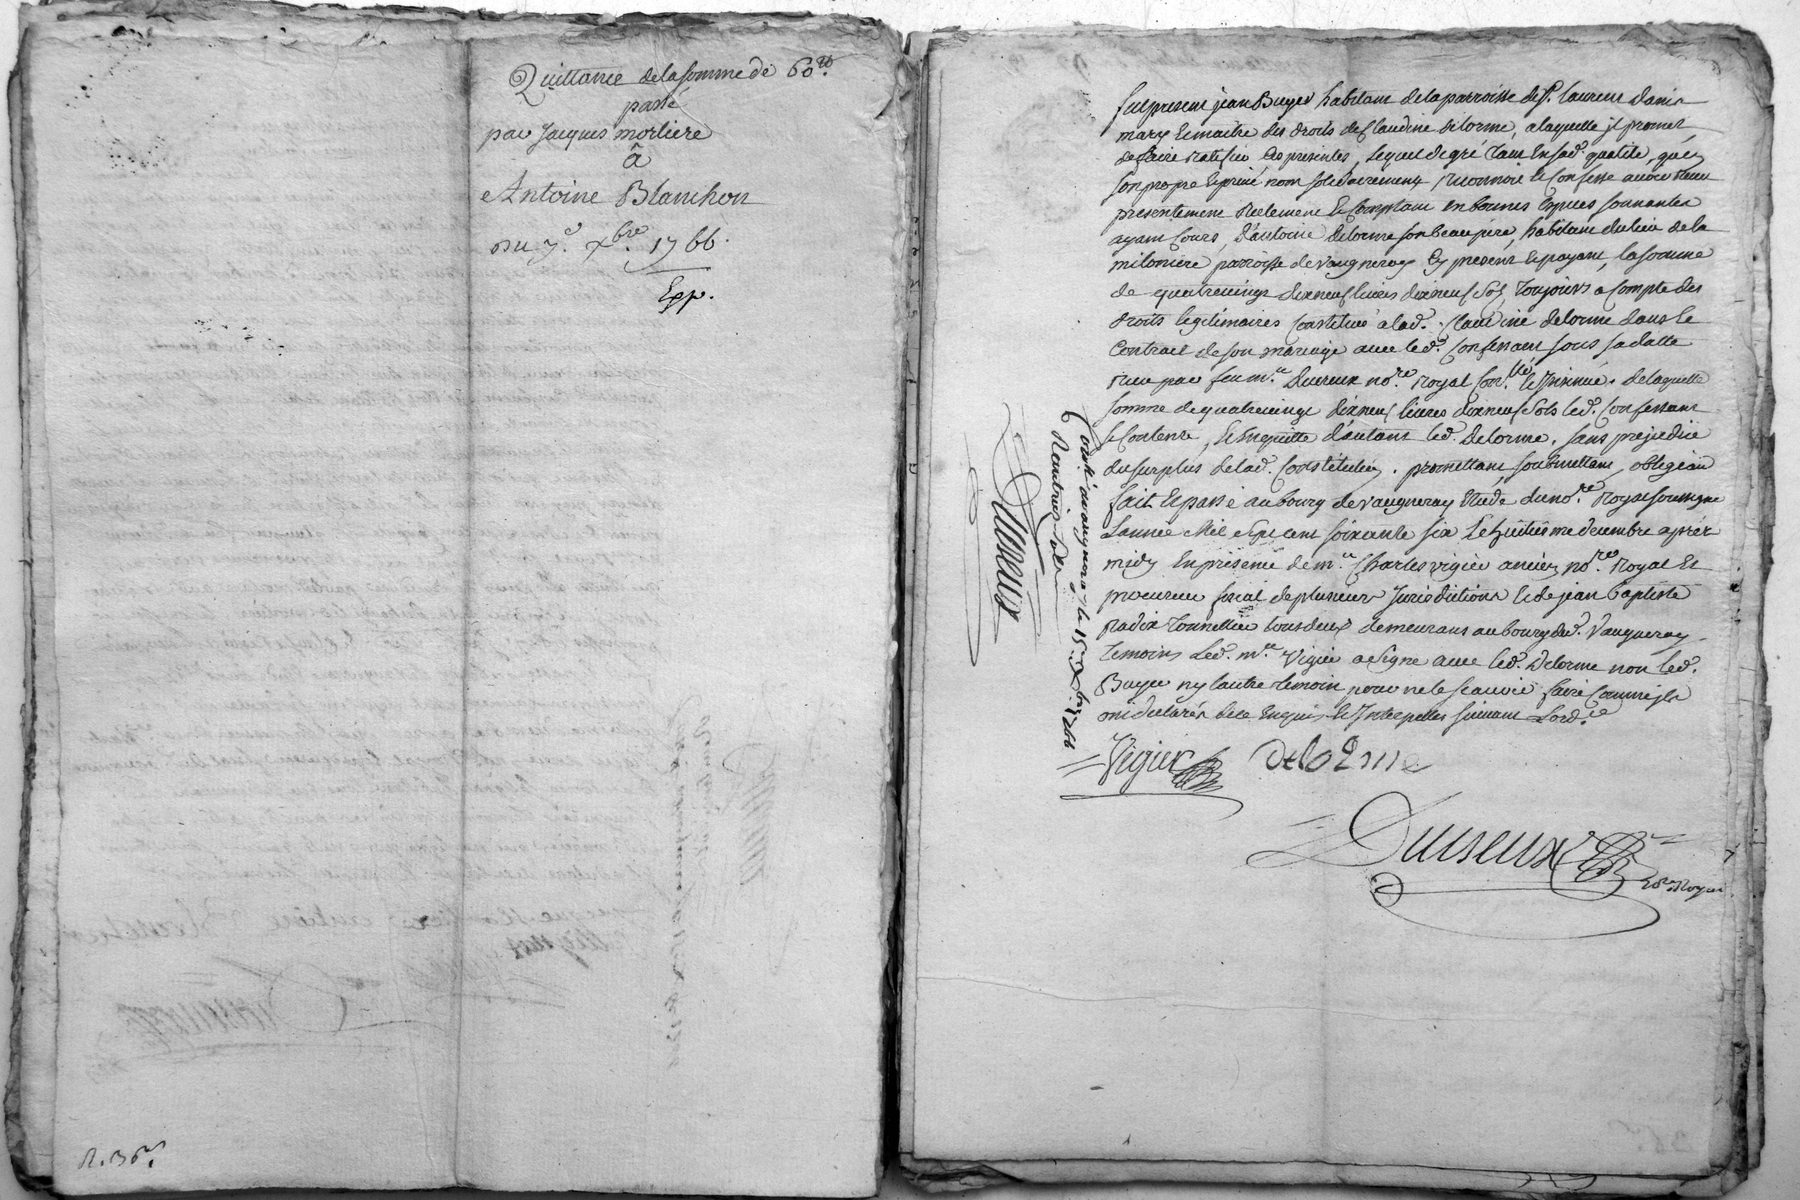 Quittance de la somme de 60 ^tt
passé
par Jacques morliere
à
Antoine Blanchon
du 7e. xbre. 1766.
Exp.
R. 
fut present jean Buyer habitant de la parroisse de st. laurent danis
mary et maitre des droits de Claudine delorme, a laquelle jl promet
de faire ratifier les presentes, lequel de gré tant en sad. qualité, qu'en
son propre et privé nom solidairement reconnoit et confesse avoir reçu
presentement réelement et comptant en bonnes especes sonnantes
ayant cours, d'antoine delorme son beau pere, habitant du lieu de la
miloniere parroisse de vaugneray cy present et payant, la somme
de quatrevingt dixneuf livres dixneuf sols, toujours a compte des
droits legitimaires constitués a lad. Claudine delorme dans le
contrat de son mariage avec led. confessant sous sa datte
reçu par feu me. Duvieux nore. royal et jnsinué, de laquelle
somme de quatrevingt dixneuf livres dixneuf sols led. confessant
se contente, et en quitte d'autant led. delorme, sans prejudice
du surplus de lad. constitution. promettant, soubmettant, obligeant
fait et passé au bourg de vaugneray etude du nore. royal soussigné
l'année mil sept cent soixante six le huitieme decembre après
midy en présence de me. Charles vigier ancien nore. royal et
procureur fiscal de plusieurs jurisdictions et de jean baptiste
radix tonnellier tous deux demeurans au bourg dud. vaugneray
temoins led. me. vigier a signé avec led. delorme non led.
Buyer ny l'autre temoin pour ne le scavoir faire comme jls
ont declarés de ce enquis et jnterpellés suivant l'ordce
Vigier delorme
Duvieux
nore. Royal
Conté. a vaugneray le 15e. xbre 1766
Duvieux